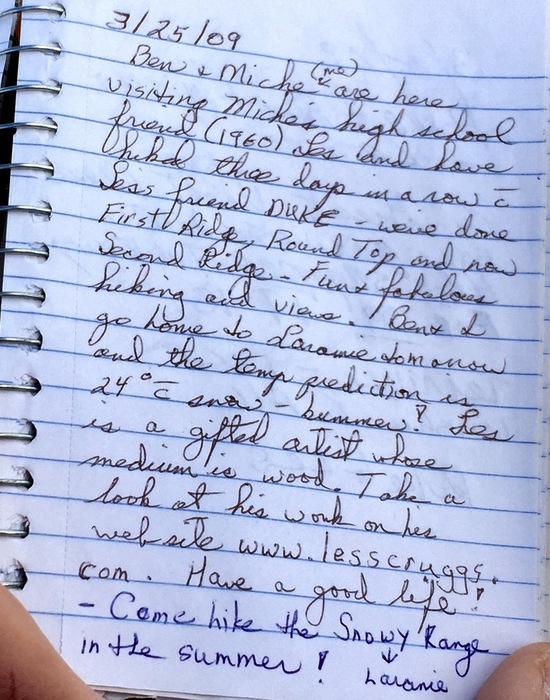 3/25/09
Ben + Miche (me) are here
visiting Miche's high school
friend (1960) Les and have
hiked three days in a row c̅
Les's friend DUKE - we've done
First Ridge, Round Top and now
Second Ridge - Fun + fabulous
hiking and views. Ben + I
go home to Laramie tomorrow
and the temp prediction is
24° c̅ snow - bummer! Les
is a gifted artist whose
medium is wood. Take a
look at his work on his
website www.lesscruggs.
com. Have a good life!
- Come hike the Snowy Range
in the summer! ↓ Laramie